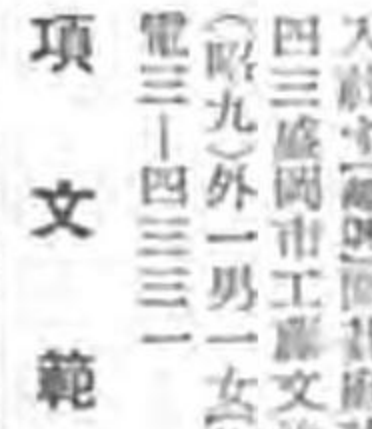 四三盛岡市工藤文
（昭九）外一男一女【
電三―四三三一
項文範